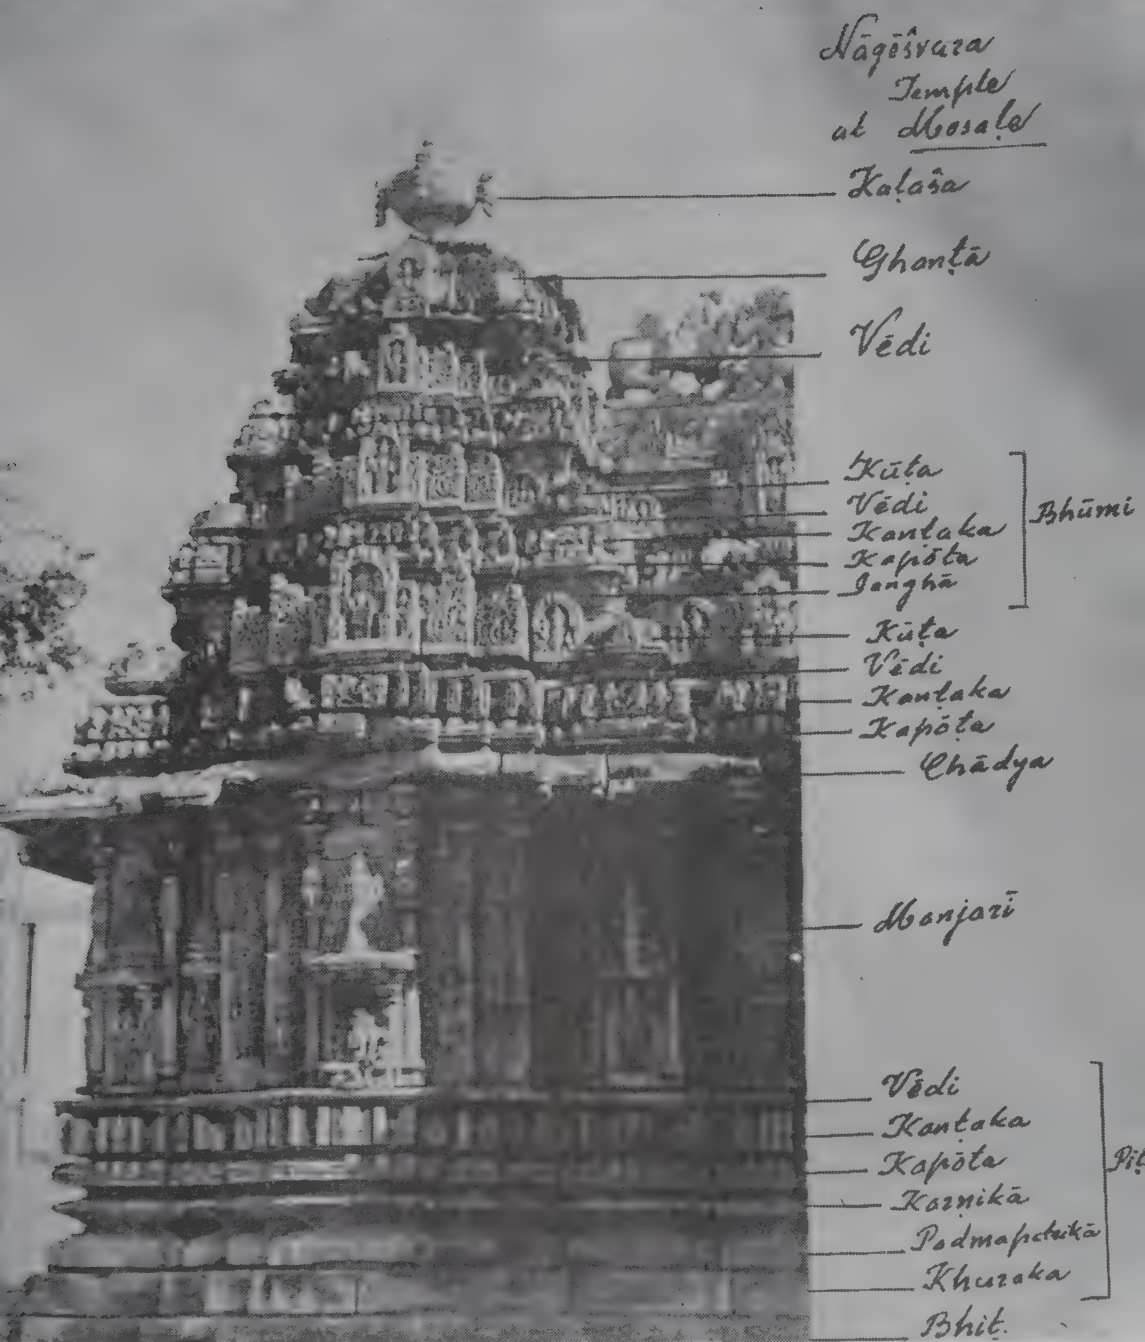 Nāgēśvara
Temple
at Mosaḷe
Kaḷaśa
Ghanṭā
Vēdi
Kūṭa
Vēdi
Kantaka
Kapōta
Janghā
Bhūmi
Kūṭa
Vēdi
Kanṭaka
Kapōṭa
Chādya
Manjarī
Vēdi
Kanṭaka
Kapōta
Karṇikā
Padmapatrikā
Khuraka
Bhit.